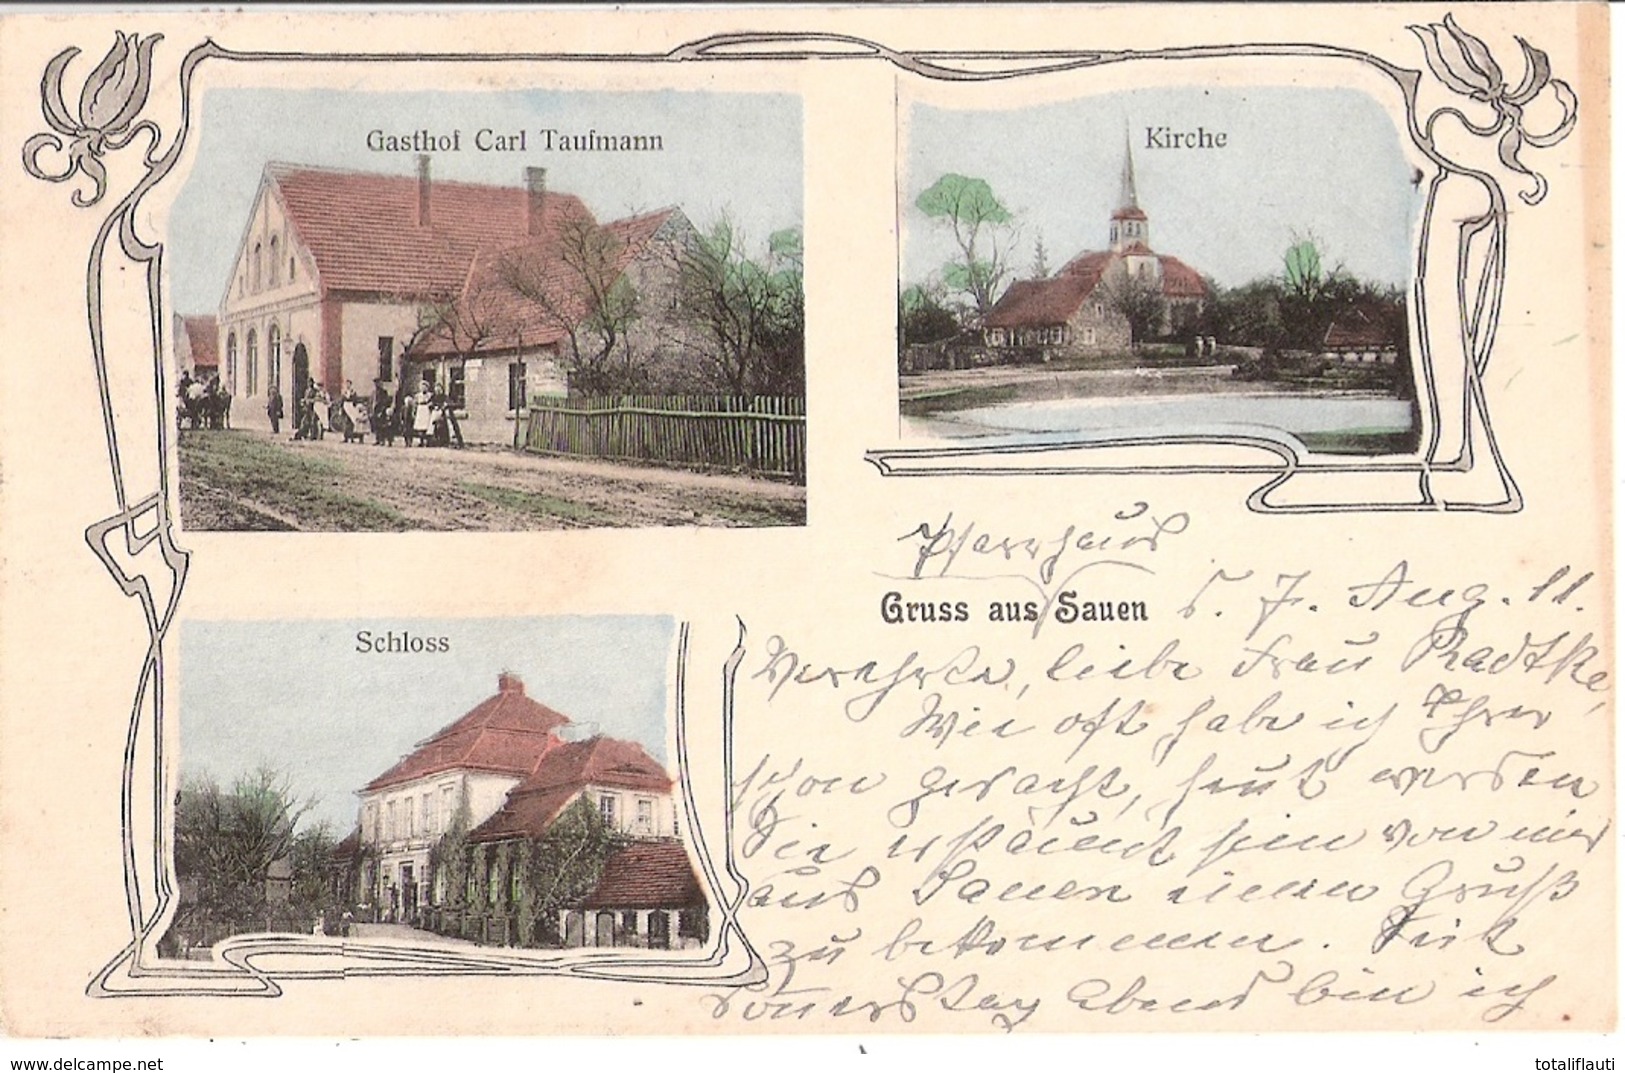 Gasthof Carl Taufmann
Kirche
Schloss
Pfarrhaus
Gruss aus Sauen d. 7. Aug. 11.
Verehrte, liebe Frau Radtke,
Wie oft habe ich Ihrer
schon gedacht, heut werden
Sie erstaunt sein von mir
aus Sauen einen Gruß
zu bekommen. Seit
Donnerstag Abend bin ich
delcampe.net
totaliflauti